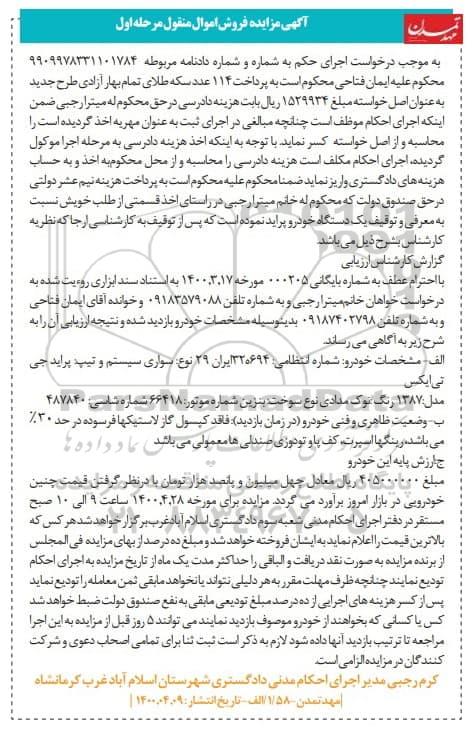 مهد تمدن
آگهی مزایده فروش اموال منقول مرحله اول
به موجب درخواست اجرای حکم به شماره و شماره دادنامه مربوطه ۹۹۰۹۹۷۸۳۳۱۱۰۱۷۸۴
محکوم علیه ایمان فتاحی محکوم است به پرداخت ۱۱۴ عدد سکه طلای تمام بهار آزادی طرح جدید
به عنوان اصل خواسته مبلغ ۱۵۲۹۹۳۴ ریال بابت هزینه دادرسی در حق محکوم له میترا رجبی ضمن
اینکه اجرای احکام موظف است چنانچه مبالغی در اجرای ثبت به عنوان مهریه اخذ گردیده است را
محاسبه و از اصل خواسته کسر نماید. با توجه به اینکه اخذ هزینه دادرسی به مرحله اجرا موکول
گردیده، اجرای احکام مکلف است هزینه دادرسی را محاسبه و از محل محکوم به اخذ و به حساب
هزینه های دادگستری واریز نماید ضمنا محکوم علیه محکوم است به پرداخت هزینه نیم عشر دولتی
در حق صندوق دولت که محکوم له خانم میترا رجبی در راستای اخذ قسمتی از طلب خویش نسبت
به معرفی و توقیف یک دستگاه خودرو پراید نموده است که پس از توقیف به کارشناسی ارجا که نظریه
کارشناس بشرح ذیل می باشد.
گزارش کارشناس ارزیابی
با احترام عطف به شماره بایگانی ۰۰۰۲۰۵ مورخه ۱۴۰۰,۳,۱۷ به استناد سند ابزاری روءیت شده به
درخواست خواهان خانم میترا رجبی و به شماره تلفن ۰۹۱۸۳۵۷۹۰۸۸ و خوانده آقای ایمان فتاحی
و به شماره تلفن ۰۹۱۸۷۴۰۲۷۹۸ بدینوسیله مشخصات خودرو بازدید شده و نتیجه ارزیابی آن را به
شرح زیر به آگاهی می رساند.
الف- مشخصات خودرو: شماره انتظامی: ۶۹۴ه۳۲ ایران ۲۹ نوع: سواری سیستم و تیپ: پراید جی
تی ایکس
مدل: ۱۳۸۷ رنگ: نوک مدادی نوع سوخت: بنزین شماره موتور: ۶۶۴۱۸ شماره شاسی: ۴۸۷۸۴۰
ب- وضعیت ظاهری و فنی خودرو (در زمان بازدید): فاقد کپسول گاز لاستیکها فرسوده در حد ۳۰٪
می باشد، رینگها اسپرت، کف پا و تودوزی صندلی ها معمولی می باشد
ج- ارزش پایه این خودرو
مبلغ ۴۰۵۰۰۰۰۰۰ ریال معادل چهل میلیون و پانصد هزار تومان با درنظر گرفتن قیمت چنین
خودرویی در بازار امروز برآورد می گردد. مزایده برای مورخه ۱۴۰۰,۴,۲۸ ساعت ۹ الی ۱۰ صبح
مستقر در دفتر اجرای احکام مدنی شعبه سوم دادگستری اسلام آباد غرب برگزار خواهد شد هر کس که
بالاترین قیمت را اعلام نماید به ایشان فروخته خواهد شد و مبلغ ده درصد از بهای مزایده فی المجلس
از برنده مزایده به صورت نقد دریافت و الباقی را حداکثر مدت یک ماه از تاریخ مزایده به اجرای احکام
تودیع نمایند چنانچه ظرف مهلت مقرر به هر دلیلی نتواند یا نخواهد مابقی ثمن معامله را تودیع نماید
پس از کسر هزینه های اجرایی از ده درصد مبلغ تودیعی مابقی به نفع صندوق دولت ضبط خواهد شد
کس یا کسانی که بخواهند از خودرو موصوف بازدید نمایند می توانند ۵ روز قبل از مزایده به این اجرا
مراجعه تا ترتیب بازدید آنها داده شود لازم به ذکر است ثبت ثنا برای تمامی اصحاب دعوی و شرکت
کنندگان در مزایده الزامی است.
کرم رجبی مدیر اجرای احکام مدنی دادگستری شهرستان اسلام آباد غرب کرمانشاه
|مهد تمدن- ۱/۵۸/الف - تاریخ انتشار: ۱۴۰۰,۰۴,۰۹|
ParsNamadData